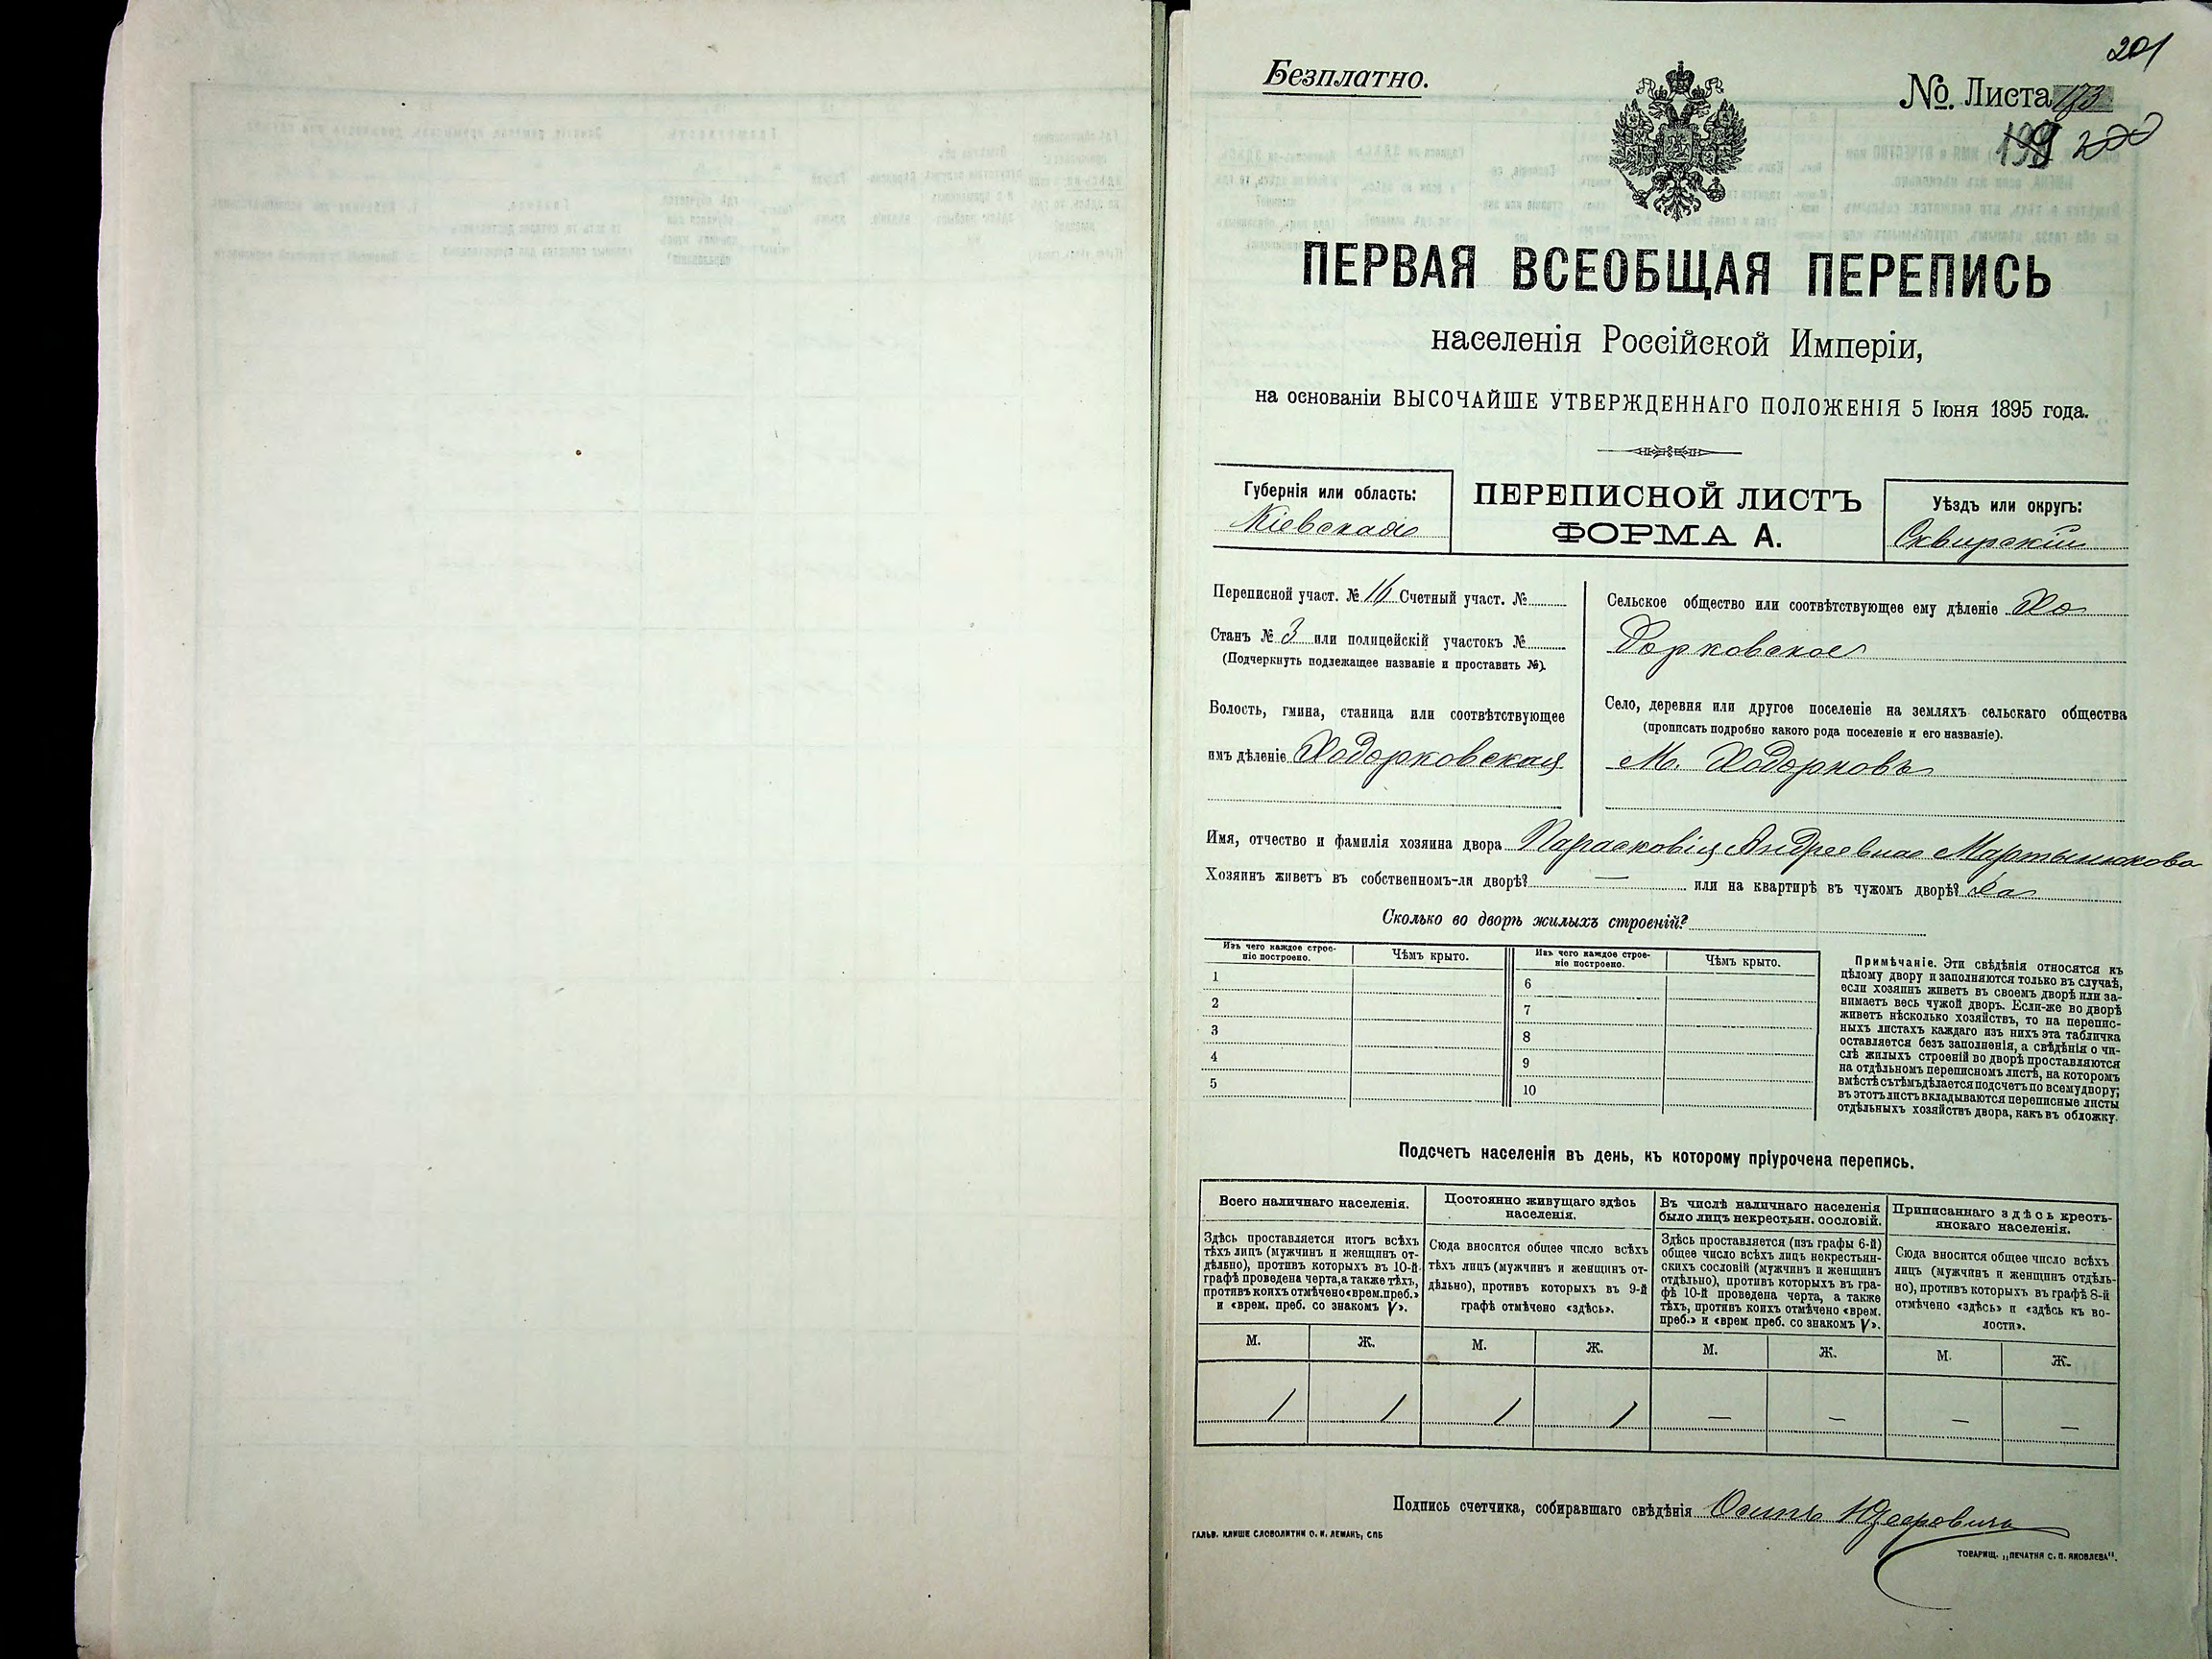 201
Безплатно.
№. Листа 173
199 200
ПЕРВАЯ ВСЕОБЩАЯ ПЕРЕПИСЬ
населенія Россійской Имперіи,
на основаніи ВЫСОЧАЙШЕ УТВЕРЖДЕННАГО ПОЛОЖЕНІЯ 5 Іюня 1895 года.
Губернія или область:
Кіевская
ПЕРЕПИСНОЙ ЛИСТЪ
ФОРМА А.
Уѣздъ или округъ:
Сквирскій
Переписной участ. № 16 Счетный участ. №
Станъ № 3 или полицейскій участокъ №
(Подчеркнуть подлежащее названіе и проставить №).
Волость, гмина, станица или соотвѣтствующее
имъ дѣленіе Ходорковская
Сельское общество или соотвѣтствующее ему дѣленіе Хо
дорковское
Село, деревня или другое поселеніе на земляхъ сельскаго общества
(прописать подробно какого рода поселеніе и его названіе).
М. Ходорковъ
Имя, отчество и фамилія хозяина двора Парасковія Андреевна Мартынюкова
Хозяинъ живетъ въ собственномъ-ли дворѣ? — или на квартирѣ въ чужомъ дворѣ? да
Сколько во дворѣ жилыхъ строеній?
Изъ чего каждое строе-
ніе построено.
Чѣмъ крыто.
1
2
3
4
5
Изъ чего каждое строе-
ніе построено.
Чѣмъ крыто.
6
7
8
9
10
Примѣчаніе. Эти свѣдѣнія относятся къ
цѣлому двору и заполняются только въ случаѣ,
если хозяинъ живетъ въ своемъ дворѣ или за-
нимаетъ весь чужой дворъ. Если-же во дворѣ
живетъ нѣсколько хозяйствъ, то на перепис-
ныхъ листахъ каждаго изъ нихъ эта табличка
оставляется безъ заполненія, а свѣдѣнія о чи-
слѣ жилыхъ строеній во дворѣ проставляются
на отдѣльномъ переписномъ листѣ, на которомъ
вмѣстѣ съ тѣмъ дѣлается подсчетъ по всему двору;
въ этотъ листъ вкладываются переписные листы
отдѣльныхъ хозяйствъ двора, какъ въ обложку.
Подсчетъ населенія въ день, къ которому пріурочена перепись.
Всего наличнаго населенія.
Здѣсь проставляется итогъ всѣхъ
тѣхъ лицъ (мужчинъ и женщинъ от-
дѣльно), противъ которыхъ въ 10-й
графѣ проведена черта, а также тѣхъ,
противъ коихъ отмѣчено «врем. преб.»
и «врем. преб. со знакомъ V».
М. Ж.
1 1
Постоянно живущаго здѣсь
населенія.
Сюда вносится общее число всѣхъ
тѣхъ лицъ (мужчинъ и женщинъ от-
дѣльно), противъ которыхъ въ 9-й
графѣ отмѣчено «здѣсь».
М. Ж.
1 1
Въ числѣ наличнаго населенія
было лицъ некрестьян. сословій.
Здѣсь проставляется (изъ графы 6-й)
общее число всѣхъ лицъ некрестьян-
скихъ сословій (мужчинъ и женщинъ
отдѣльно), противъ которыхъ въ гра-
фѣ 10-й проведена черта, а также
тѣхъ, противъ коихъ отмѣчено «врем.
преб.» и «врем преб. со знакомъ V».
М. Ж.
— —
Приписаннаго здѣсь кресть-
янскаго населенія.
Сюда вносится общее число всѣхъ
лицъ (мужчинъ и женщинъ отдѣль-
но), противъ которыхъ въ графѣ 8-й
отмѣчено «здѣсь» и «здѣсь къ во-
лости».
М. Ж.
— —
Подпись счетчика, собиравшаго свѣдѣнія Осипъ
ГАЛЬВ. КЛИШЕ СЛОВОЛИТНИ О. И. ЛЕМАНЪ, СПБ
ТОВАРИЩ. „ПЕЧАТНЯ С. П. ЯКОВЛЕВА".